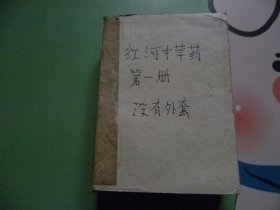 红河中草药
第一册
没有外套